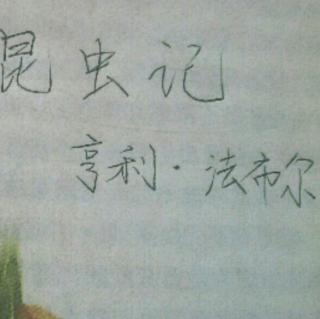 昆虫记
亨利·法布尔